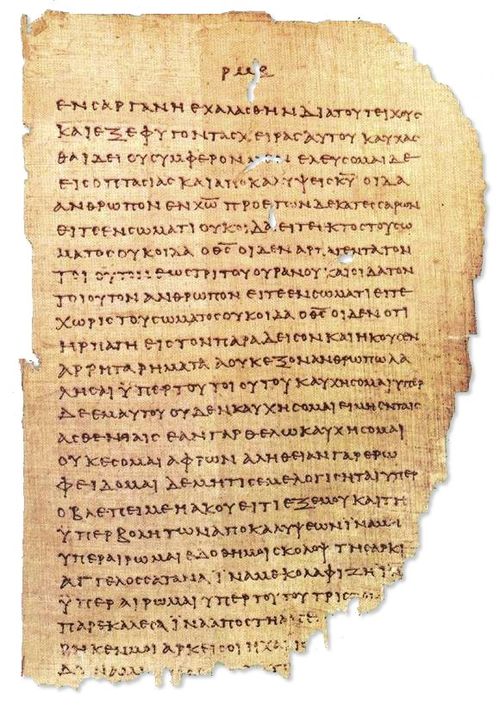 ΕΝ ΣΑΡΓΑΝΗ ΕΧΑΛΑΣΘΗΝ ΔΙΑ ΤΟΥ ΤΕΙΧΟΥΣ
ΚΑΙ ΕΞΕΦΥΓΟΝ ΤΑΣ ΧΕΙΡΑΣ ΑΥΤΟΥ ΚΑΥΧΑΣ
ΘΑΙ ΔΕΙ ΟΥ ΣΥΜΦΕΡΟΝ ΜΕΝ ΕΛΕΥΣΟΜΑΙ ΔΕ
ΕΙΣ ΟΠΤΑΣΙΑΣ ΚΑΙ ΑΠΟΚΑΛΥΨΕΙΣ Κ̅Υ̅ ΟΙΔΑ
ΑΝΘΡΩΠΟΝ ΕΝ Χ̅Ω̅ ΠΡΟ ΕΤΩΝ ΔΕΚΑΤΕΣΣΑΡΩΝ
ΕΙΤΕ ΕΝ ΣΩΜΑΤΙ ΟΥΚ ΟΙΔΑ ΕΙΤΕ ΕΚΤΟΣ ΤΟΥ ΣΩ
ΜΑΤΟΣ ΟΥΚ ΟΙΔΑ Ο Θ̅Σ̅ ΟΙΔΕΝ ΑΡΠΑΓΕΝΤΑ ΤΟΝ
ΤΟΙΟΥΤΟΝ ΕΩΣ ΤΡΙΤΟΥ ΟΥΡΑΝΟΥ ΚΑΙ ΟΙΔΑ ΤΟΝ
ΤΟΙΟΥΤΟΝ ΑΝΘΡΩΠΟΝ ΕΙΤΕ ΕΝ ΣΩΜΑΤΙ ΕΙΤΕ
ΧΩΡΙΣ ΤΟΥ ΣΩΜΑΤΟΣ ΟΥΚ ΟΙΔΑ Ο Θ̅Σ̅ ΟΙΔΕΝ ΟΤΙ
ΗΡΠΑΓΗ ΕΙΣ ΤΟΝ ΠΑΡΑΔΕΙΣΟΝ ΚΑΙ ΗΚΟΥΣΕΝ
ΑΡΡΗΤΑ ΡΗΜΑΤΑ Α ΟΥΚ ΕΞΟΝ ΑΝΘΡΩΠΩ ΛΑ
ΛΗΣΑΙ ΫΠΕΡ ΤΟΥ ΤΟΙΟΥΤΟΥ ΚΑΥΧΗΣΟΜΑΙ ΥΠΕΡ
ΔΕ ΕΜΑΥΤΟΥ ΟΥΔΕΝ ΚΑΥΧΗΣΟΜΑΙ ΕΙ ΜΗ ΕΝ ΤΑΙΣ
ΑΣΘΕΝΕΙΑΙΣ ΕΑΝ ΓΑΡ ΘΕΛΩ ΚΑΥΧΗΣΟΜΑΙ
ΟΥΚ ΕΣΟΜΑΙ ΑΦΡΩΝ ΑΛΗΘΕΙΑΝ ΓΑΡ ΕΡΩ
ΦΕΙΔΟΜΑΙ ΔΕ ΜΗ ΤΙΣ ΕΜΕ ΛΟΓΙΣΗΤΑΙ ΥΠΕΡ
Ο ΒΛΕΠΕΙ ΜΕ Η ΑΚΟΥΕΙ ΤΙ ΕΞ ΕΜΟΥ ΚΑΙ ΤΗ
ΫΠΕΡΒΟΛΗ ΤΩΝ ΑΠΟΚΑΛΥΨΕΩΝ ΪΝΑ Μ
ΥΠΕΡΑΙΡΩΜΑΙ ΕΔΟΘΗ ΜΟΙ ΣΚΟΛΟΨ ΤΗ ΣΑΡΚΙ
ΑΓΓΕΛΟΣ ΣΑΤΑΝΑ ΪΝΑ ΜΕ ΚΟΛΑΦΙΖΗ Ϊ
ΫΠΕΡΑΙΡΩΜΑΙ ΥΠΕΡ ΤΟΥΤΟΥ ΤΡΙΣ
ΠΑΡΕΚΑΛΕΣΑ ΪΝΑ ΑΠΟΣΤΗ
ΚΕΝ ΜΟΙ ΑΡΚΕΙ ΣΟΙ Η ΧΑΡΙΣ